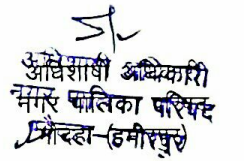 अधिशाषी अधिकारी
नगर पालिका परिषद
मौदहा-(हमीरपुर)